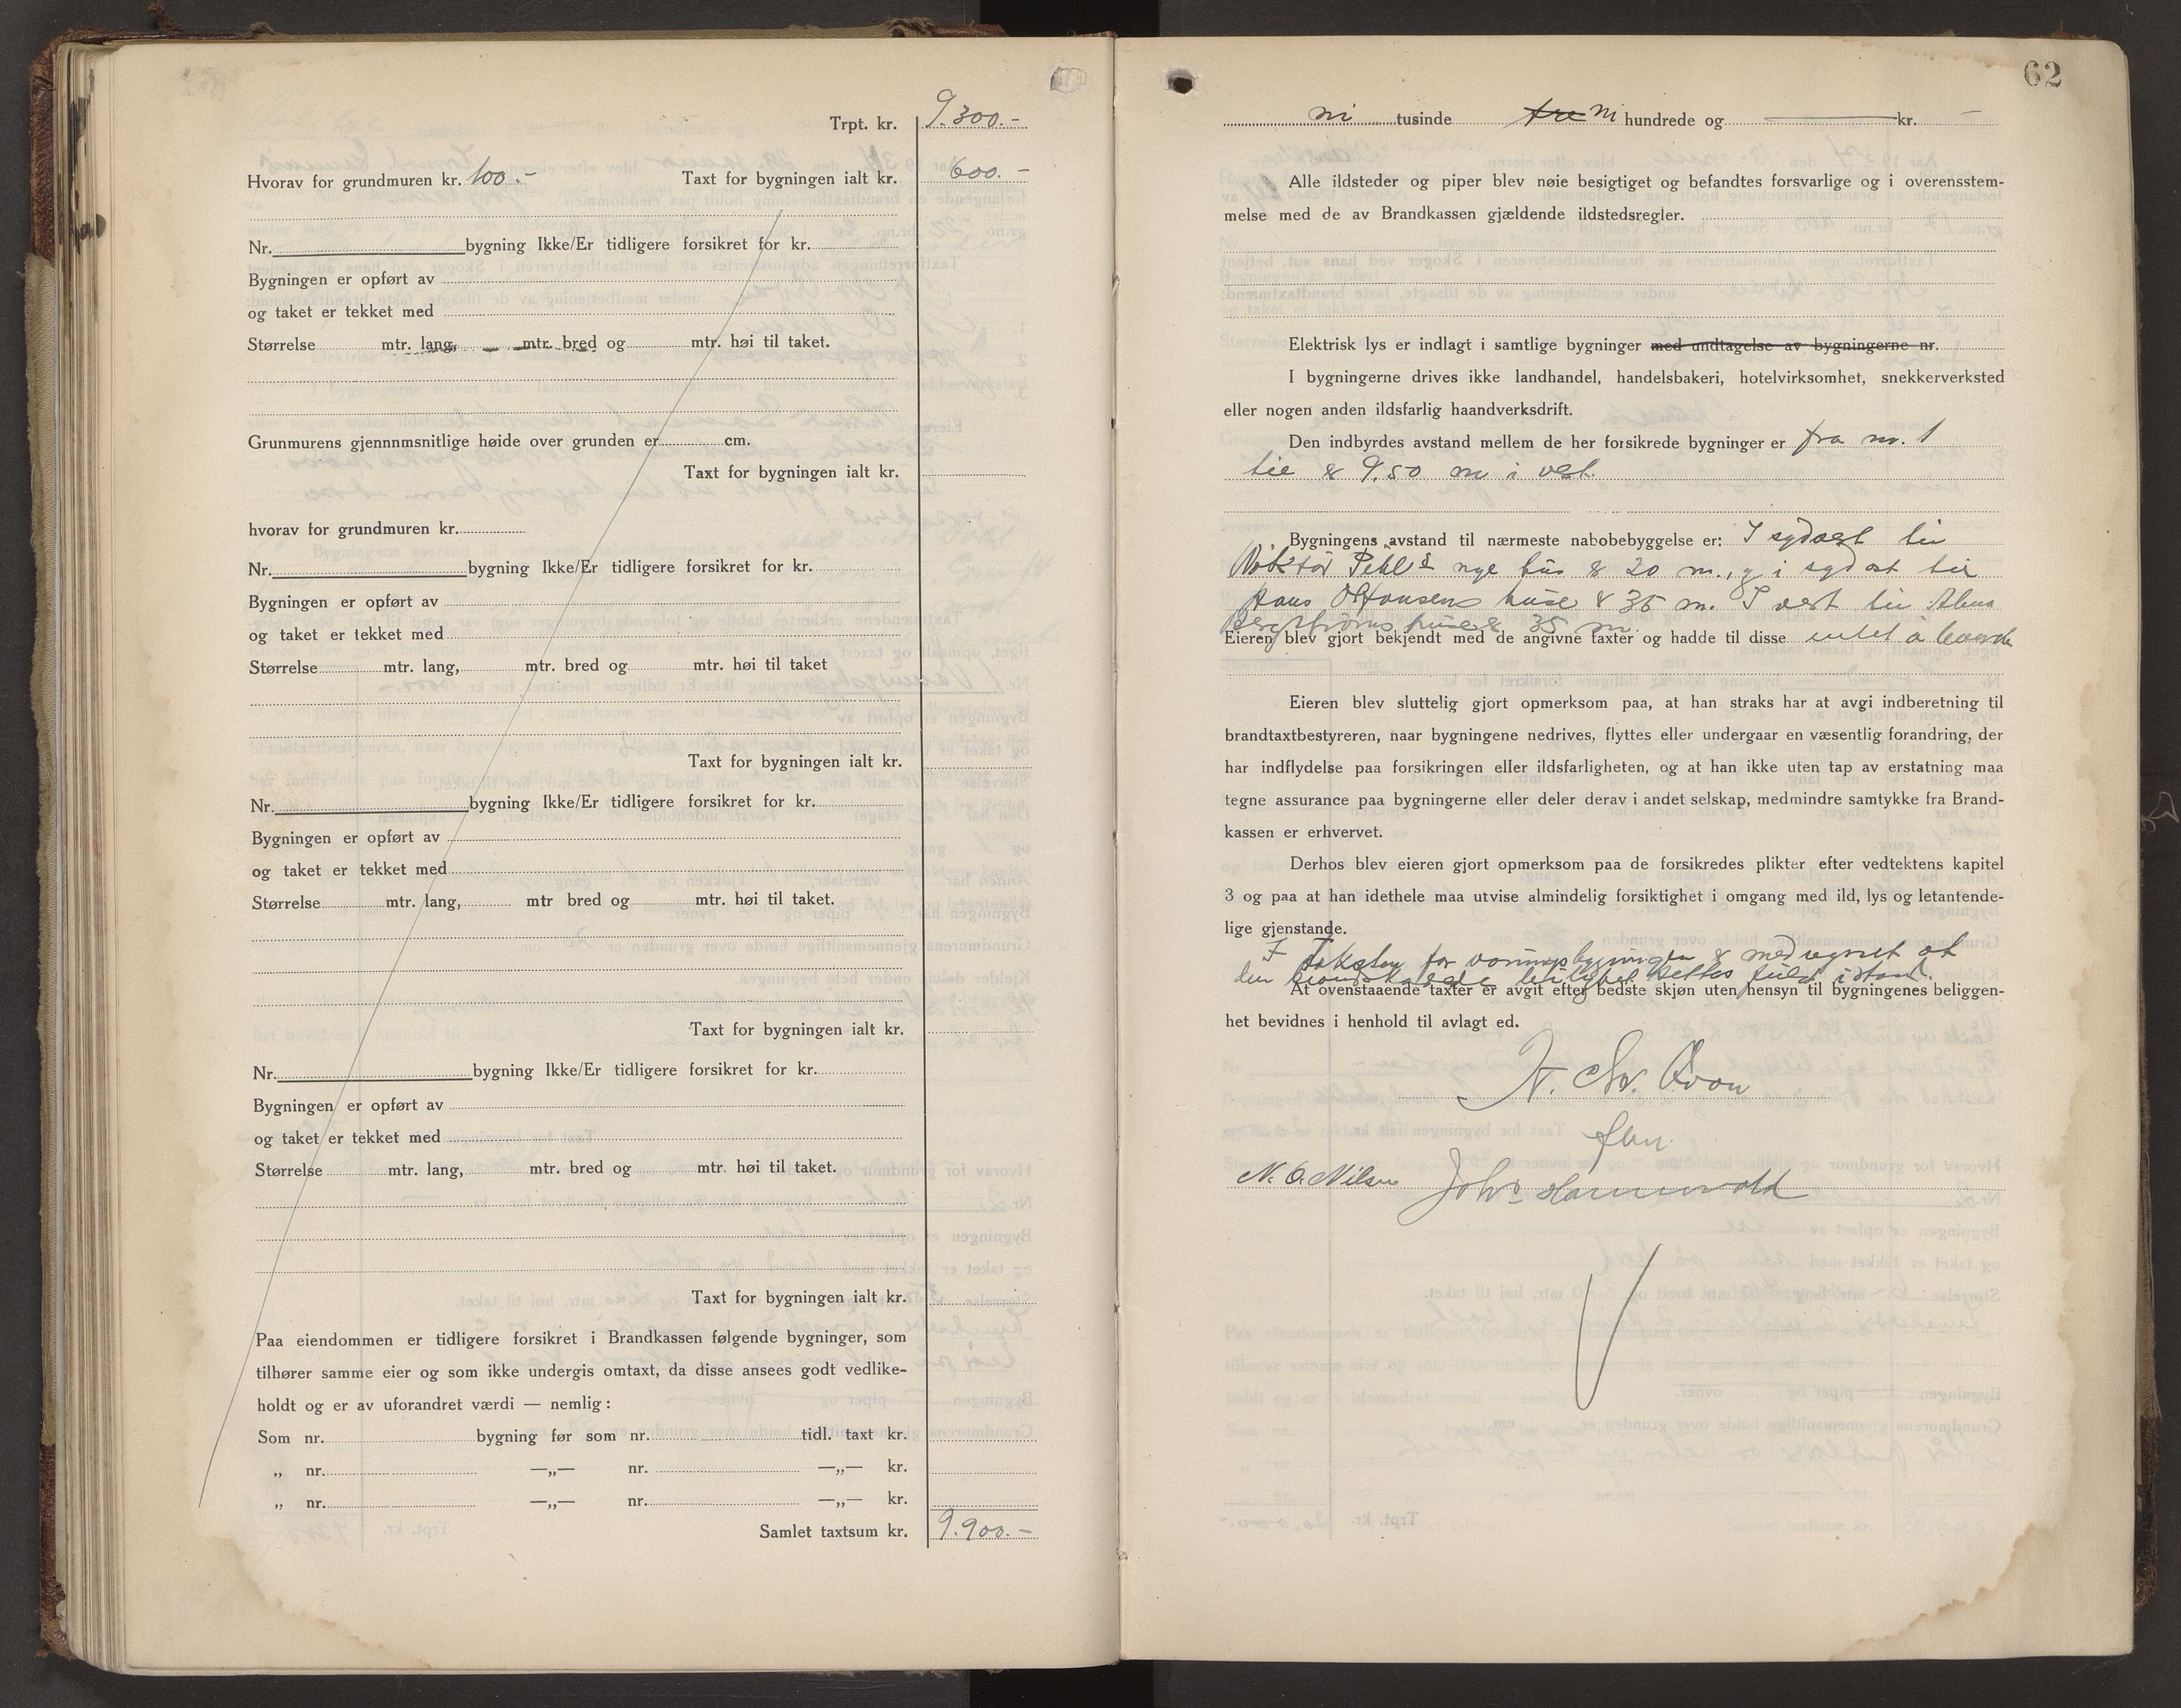 Trpt. kr. 9.300.-
Hvorav for grundmuren kr. 100.- Taxt for bygningen ialt kr. 600.-
Nr. bygning Ikke/Er tidligere forsikret for kr.
Bygningen er opført av
og taket er tekket med
Størrelse mtr. lang, mtr. bred og mtr. høi til taket.
Grunmurens gjennnmsnitlige høide over grunden er cm.
Taxt for bygningen ialt kr.
hvorav for grundmuren kr.
Nr. bygning Ikke/Er tidligere forsikret for kr.
Bygningen er opført av
og taket er tekket med
Størrelse mtr. lang, mtr. bred og mtr. høi til taket
Taxt for bygningen ialt kr.
Nr. bygning Ikke/Er tidligere forsikret for kr.
Bygningen er opført av
og taket er tekket med
Størrelse mtr. lang, mtr bred og mtr. høi til taket.
Taxt for bygningen ialt kr.
Nr. bygning Ikke/Er tidligere forsikret for kr.
Bygningen er opført av
og taket er tekket med
Størrelse mtr. lang, mtr. bred og mtr. høi til taket.
Taxt for bygningen ialt kr.
Paa eiendommen er tidligere forsikret i Brandkassen følgende bygninger, som
tilhører samme eier og som ikke undergis omtaxt, da disse ansees godt vedlike-
holdt og er av uforandret værdi — nemlig:
Som nr. bygning før som nr. tidl. taxt kr.
„ nr. —„— nr. —„— kr.
„ nr. —„— nr. —„— kr.
Samlet taxtsum kr. 9.900.-
62
ni tusinde tre ni hundrede og — kr. —
Alle ildsteder og piper blev nøie besigtiget og befandtes forsvarlige og i overensstem-
melse med de av Brandkassen gjældende ildstedsregler.
Elektrisk lys er indlagt i samtlige bygninger med undtagelse av bygningerne nr.
I bygningerne drives ikke landhandel, handelsbakeri, hotelvirksomhet, snekkerverksted
eller nogen anden ildsfarlig haandverksdrift.
Den indbyrdes avstand mellem de her forsikrede bygninger er fra nr. 1
til 2 9.50 m i vest.
Bygningens avstand til nærmeste nabobebyggelse er: I sydvest til
Pehls nye hus er 20 m., og i syd øst til
Hans Hansens huse er 35 m. I vest til
huse er 35 m.
Eieren blev gjort bekjendt med de angivne taxter og hadde til disse intet å bemerke
Eieren blev sluttelig gjort opmerksom paa, at han straks har at avgi indberetning til
brandtaxtbestyreren, naar bygningene nedrives, flyttes eller undergaar en væsentlig forandring, der
har indflydelse paa forsikringen eller ildsfarligheten, og at han ikke uten tap av erstatning maa
tegne assurance paa bygningerne eller deler derav i andet selskap, medmindre samtykke fra Brand-
kassen er erhvervet.
Derhos blev eieren gjort opmerksom paa de forsikredes plikter efter vedtektens kapitel
3 og paa at han idethele maa utvise almindelig forsiktighet i omgang med ild, lys og letantende-
lige gjenstande.
I taksten for våningsbygningen er medregnet at
den brandskadede leilighet settes fuld istand.
At ovenstaaende taxter er avgit efter bedste skjøn uten hensyn til bygningenes beliggen-
het bevidnes i henhold til avlagt ed.
N. Chr. Qvon
N. O. Nilsen Johs Hannevold